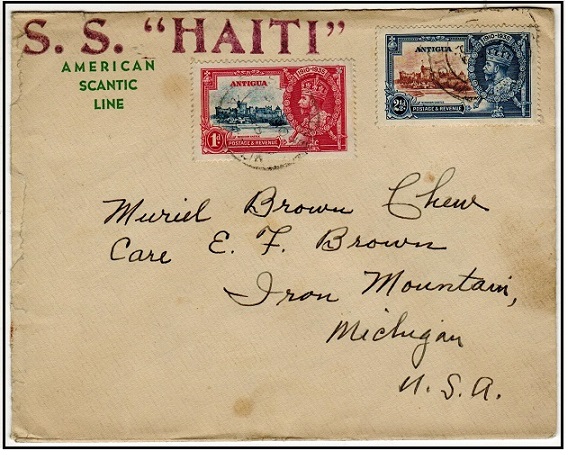 S. S. "HAITI"
AMERICAN
SCANTIC
LINE
ANTIGUA
1910-1935
1d
POSTAGE & REVENUE
ANTIGUA
1910-1935
2½d
POSTAGE & REVENUE
Muriel Brown Chew
Care E. F. Brown
Iron Mountain,
Michigan
U.S.A.